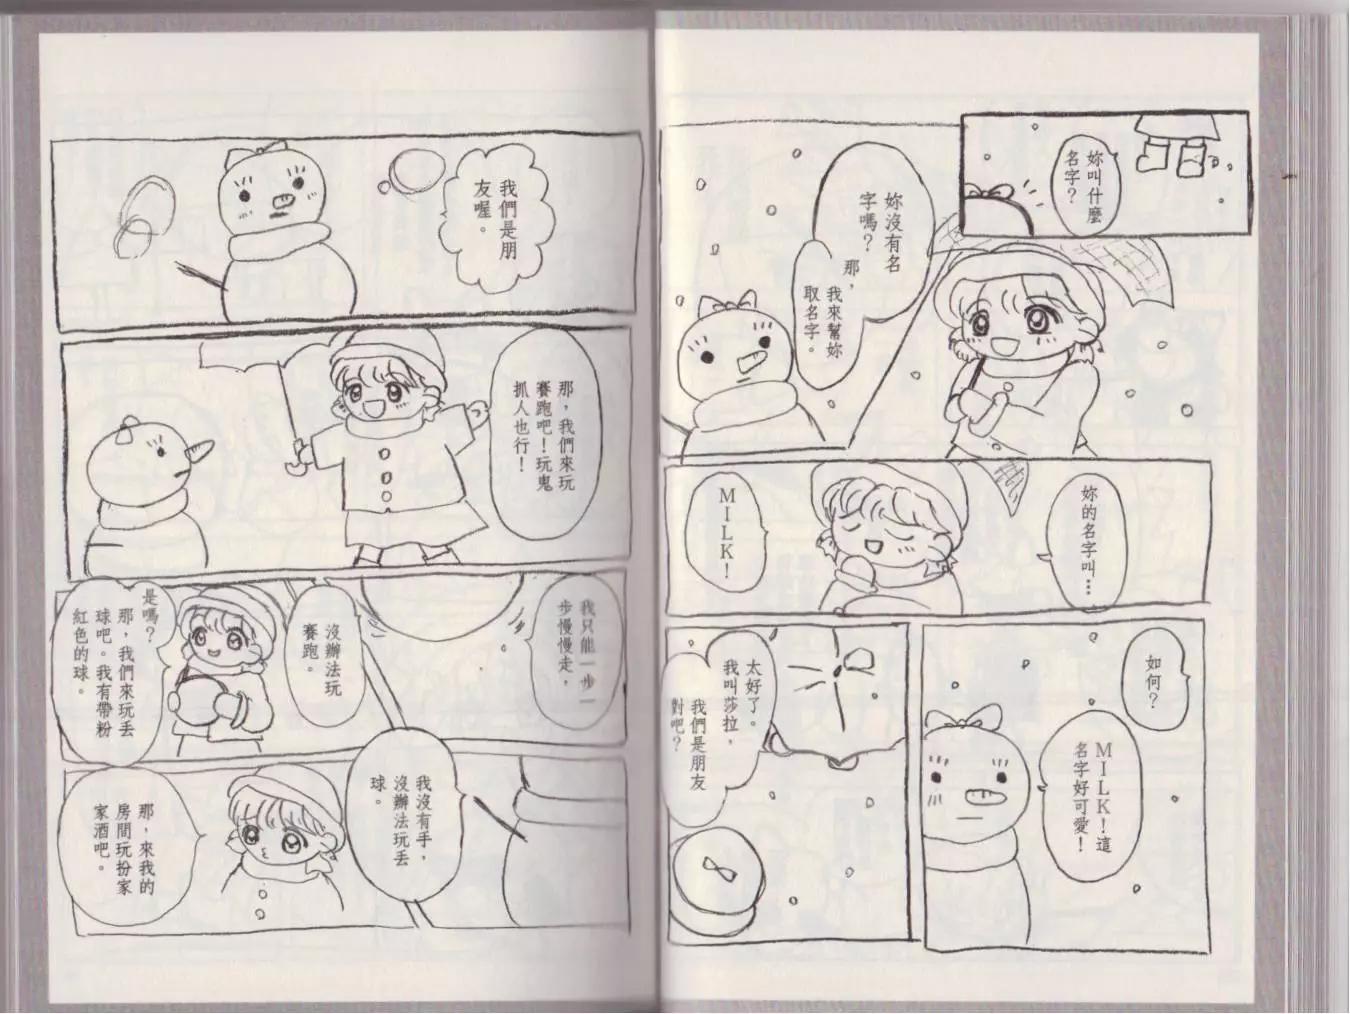 妳叫什麼
名字？
妳沒有名
字嗎？
那，
我來幫妳
取名字。
妳的名字叫…
MILK！
如何？
MILK！這
名字好可愛！
太好了。
我叫莎拉，
我們是朋友
對吧？
我們是朋
友喔。
那，我們來玩
賽跑吧！玩鬼
抓人也行！
我只能一步一
步慢慢走，
沒辦法玩
賽跑。
是嗎？
那，我們來玩丟
球吧。我有帶粉
紅色的球。
我沒有手，
沒辦法玩丟
球。
那，來我的
房間玩扮家
家酒吧。